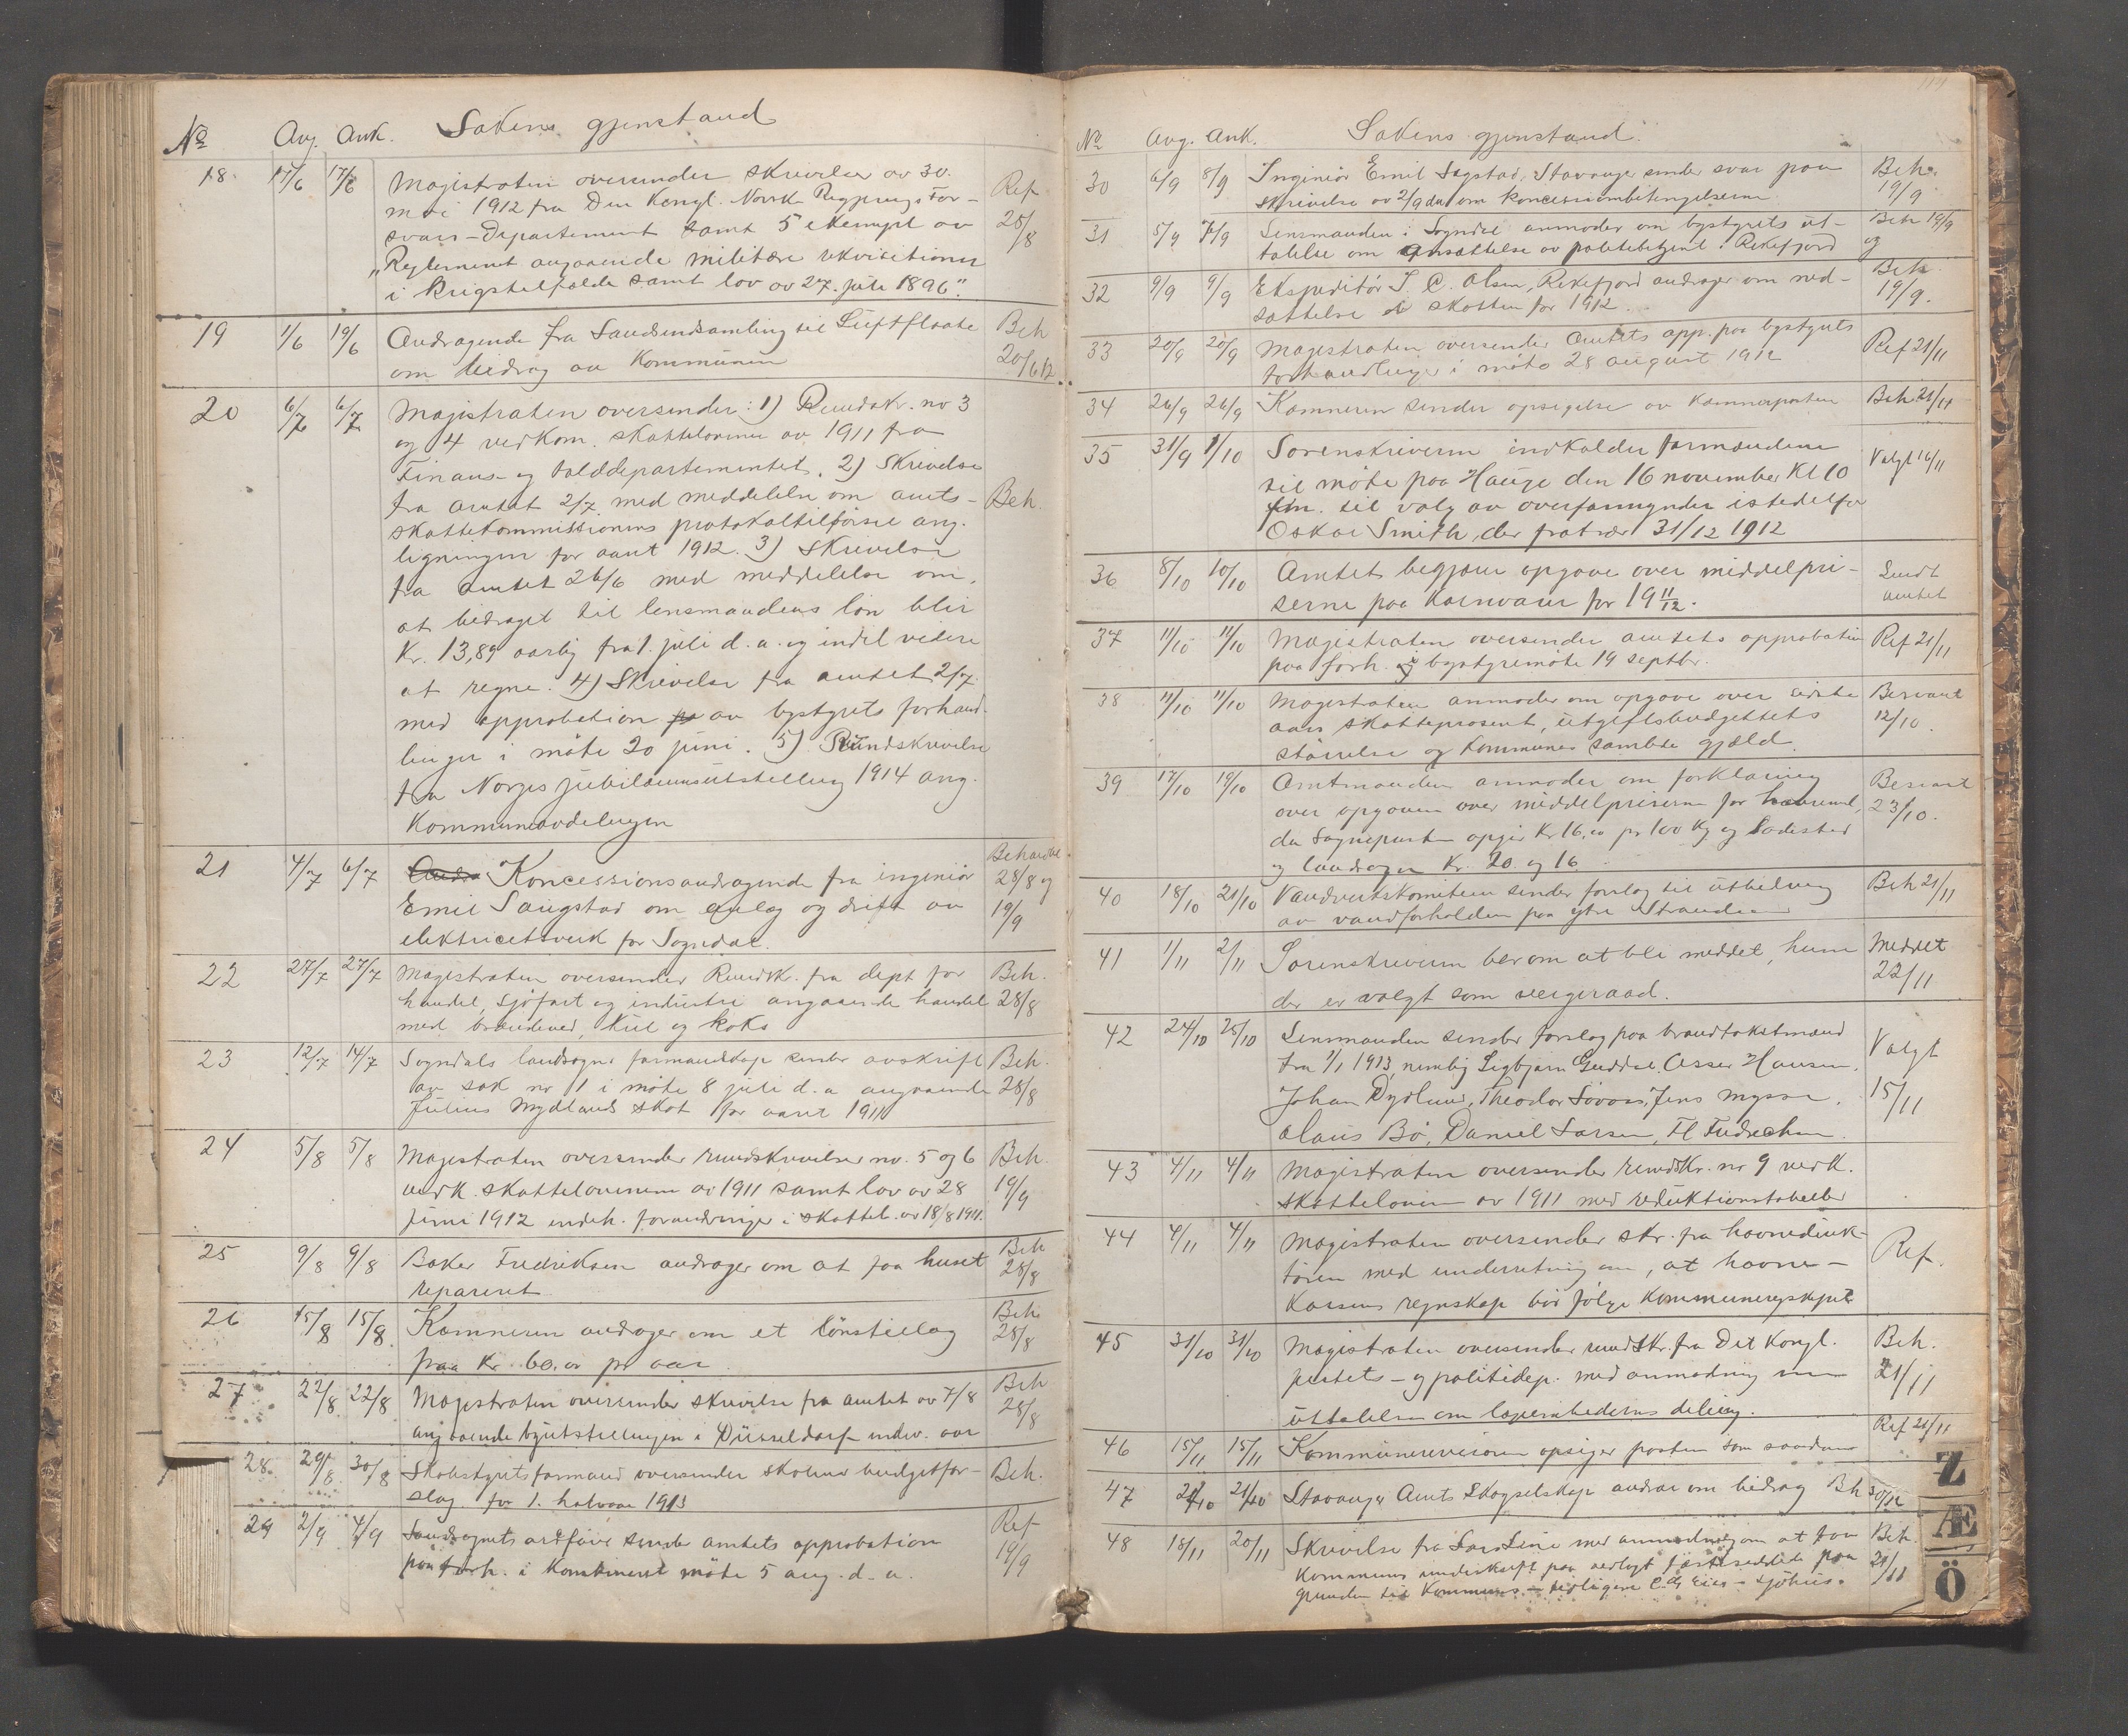 No Avg. Ank. Sakens gjenstand
18. 17/6 17/6 Magistraten oversender skrivelse av 30.
mai 1912 fra Den Kongl. Norsk Regjerings For-
svars-Departement samt 5 eksempl av
"Reglement angaaende militære rekvisitioner
i krigstilfælde samt lov av 27. juli 1896".
Ref 28/8
19 1/6 19/6 Andragende fra Landsindsamling til Luftflaate
om bidrag av Kommunen
Beh 20/6 12
20 6/7 6/7 Magistraten oversender: 1) Rundskr. no 3
og 4 vedkom. skatteloverne av 1911 fra
Finans- og tolddepartementet. 2) Skrivelse
fra amtet 2/7 med meddelelse om amts-
skattekommissionens protokoltilførsel ang.
ligningen for aaret 1912. 3) Skrivelse
fra amtet 26/6 med meddelelse om,
at bidraget til lensmandens løn blir
Kr. 13,89 aarlig fra 1. juli d. a. og indtil videre
at regne. 4) Skrivelse fra amtet 2/7
med approbation pa av bystyrets forhand-
linger i møte 20 juni. 5) Rundskrivelse
fra Norges jubilæumsutstilling 1914 ang.
Kommuneavdelingen
Beh.
21 4/7 6/7 Andra Koncessionsandragende fra ingeniør
Emil Saugstad om anlæg og drift av
elektricitetsverk for Sogndal.
Behandlet 28/8 og 19/9
22 27/7 27/7 Magistraten oversender Rundsk. fra dept for
handel, sjøfart og industri angaaende handel
med brændeved, kul og koks
Beh. 28/8
23 12/7 14/7 Sogndals landsogns formandskap sender avskrift
av sak no 11 i møte 8 juli d. a angaaende
Julius Mydlands skat for aaret 1911
Beh. 28/8
24 5/8 5/8 Magistraten oversender rundskrivelser no. 5 og 6
vedk. skatteloverne av 1911 samt lov av 28
juni 1912 indeh. forandringer i skattel. av 18/8 1911.
Beh. 19/9
25 9/8 9/8 Baker Fredriksen andrager om at faa huset
reparert
Beh 28/8
26 15/8 15/8 Kæmneren andrager om et lønstillæg
paa Kr. 60.00 pr aar
Beh 28/8
27 22/8 22/8 Magistraten oversender skrivelse fra amtet av 7/8
angaaende byutstillingen i Düsseldorf indev. aar
Beh 28/8
28. 29/8 30/8 Skolestyrets formand oversender skolens budgetfor-
slag for 1. halvaar 1913
Beh.
29 2/9 4/9 Landsognets ordfører sender amtets approbation
paa forh. i Kombineret møte 5 aug. d. a.
Ref 19/9
No Avg. Ank. Sakens gjenstand.
30 6/9 8/9 Ingeniør Emil Sagstad, Stavanger sender svar paa
skrivelse av 2/9 da om koncessionsbetingelserne
Beh. 19/9
31 5/9 7/9 Lensmanden i Sogndal anmoder om bystyrets ut-
talelse om ansættelse av politibetjent i Rekefjord
Beh 19/9 og
32 9/9 9/9 Ekspeditør S. C. Olsen, Rekefjord andrager om ned-
sættelse i skatten for 1912.
Beh. 19/9.
33 20/9 20/9 Magistraten oversender Amtets app. paa bystyrets
forhandlinger i møte 28 august 1912
Ref 21/11
34 26/9 26/9 Kæmneren sender opsigelse av kæmnerposten
Beh 21/11
35 31/9 1/10 Sorenskriveren indkalder formændene
til møte paa Hauge den 16 november Kl 10
fm. til valg av overformynder istedetfor
Oskar Smith, der fratrær 31/12 1912
Valgt 16/11
36 8/10 10/10 Amtet begjærer opgave over middelpri-
serne paa kornvarer for 19 11/12.
Sendt amtet
37 11/10 11/10 Magistraten oversender amtets approbation
paa forh. i bystyremøte 19 septbr.
Ref 21/11
38 11/10 11/10 Magistraten anmoder om opgave over sidste
aars skatteprosent, utgiftsbudgettets
størrelse og Kommunes samlede gjæld.
Besvart 12/10.
39 17/10 19/10 Amtmanden anmoder om forklaring
over opgaven over middelpriserne for havremel,
da Sogneposten opgir Kr 16,00 pr 100 Kg og Ladested
og landsogn Kr. 20. og 16.
Besvart 23/10.
40 18/10 20/10 Vandverkskomiteen sender forslag til utbedring
av vandforholdene paa ytre Stranden
Beh 21/11
41 1/11 2/11 Sorenskriveren ber om at bli meddelt, hvem
der er valgt som vergeraad.
Meddelt 22/11
42 24/10 25/10 Lensmanden sender forslag paa brandtakstmænd
fra 1/1 1913, nemlig Sigbjørn Guddal, Asser Hansen,
Johan Dydland, Theodor Løvaas, Jens Mysse,
Claus Bø, Daniel Larsen, H Fredriksen.
Valgt 15/11
43 4/11 4/11 Magistraten oversender rundskr. no 9 vedk.
skatteloven av 1911 med reduktionstabeller
44 4/11 4/11 Magistraten oversender skr. fra havnedirek-
tøren med underretning om, at havne-
kassens regnskap bør følge Kommuneregnskapet
Ref.
45 31/10 31/10 Magistraten oversender rundskr. fra Det Kongl.
justits- og politidep. med anmodning om
uttalelse om lægeembedernes deling.
Beh. 21/11
46 15/11 15/11 Kommunerevisoren opsiger posten som saadan
Ref 21/11
47 21/10 21/10 Stavanger Amts Skogselskap andrar om bidrag Beh 30/12
48 18/11 20/11 Skrivelse fra Lars Sine med anmodning om at faa
Kommunens underskrift paa vedlagt fæsteseddel paa
grunden til Kommunens - tidligere C. G. Eies - sjøhus.
Beh. 21/11
Z
Æ
Ö